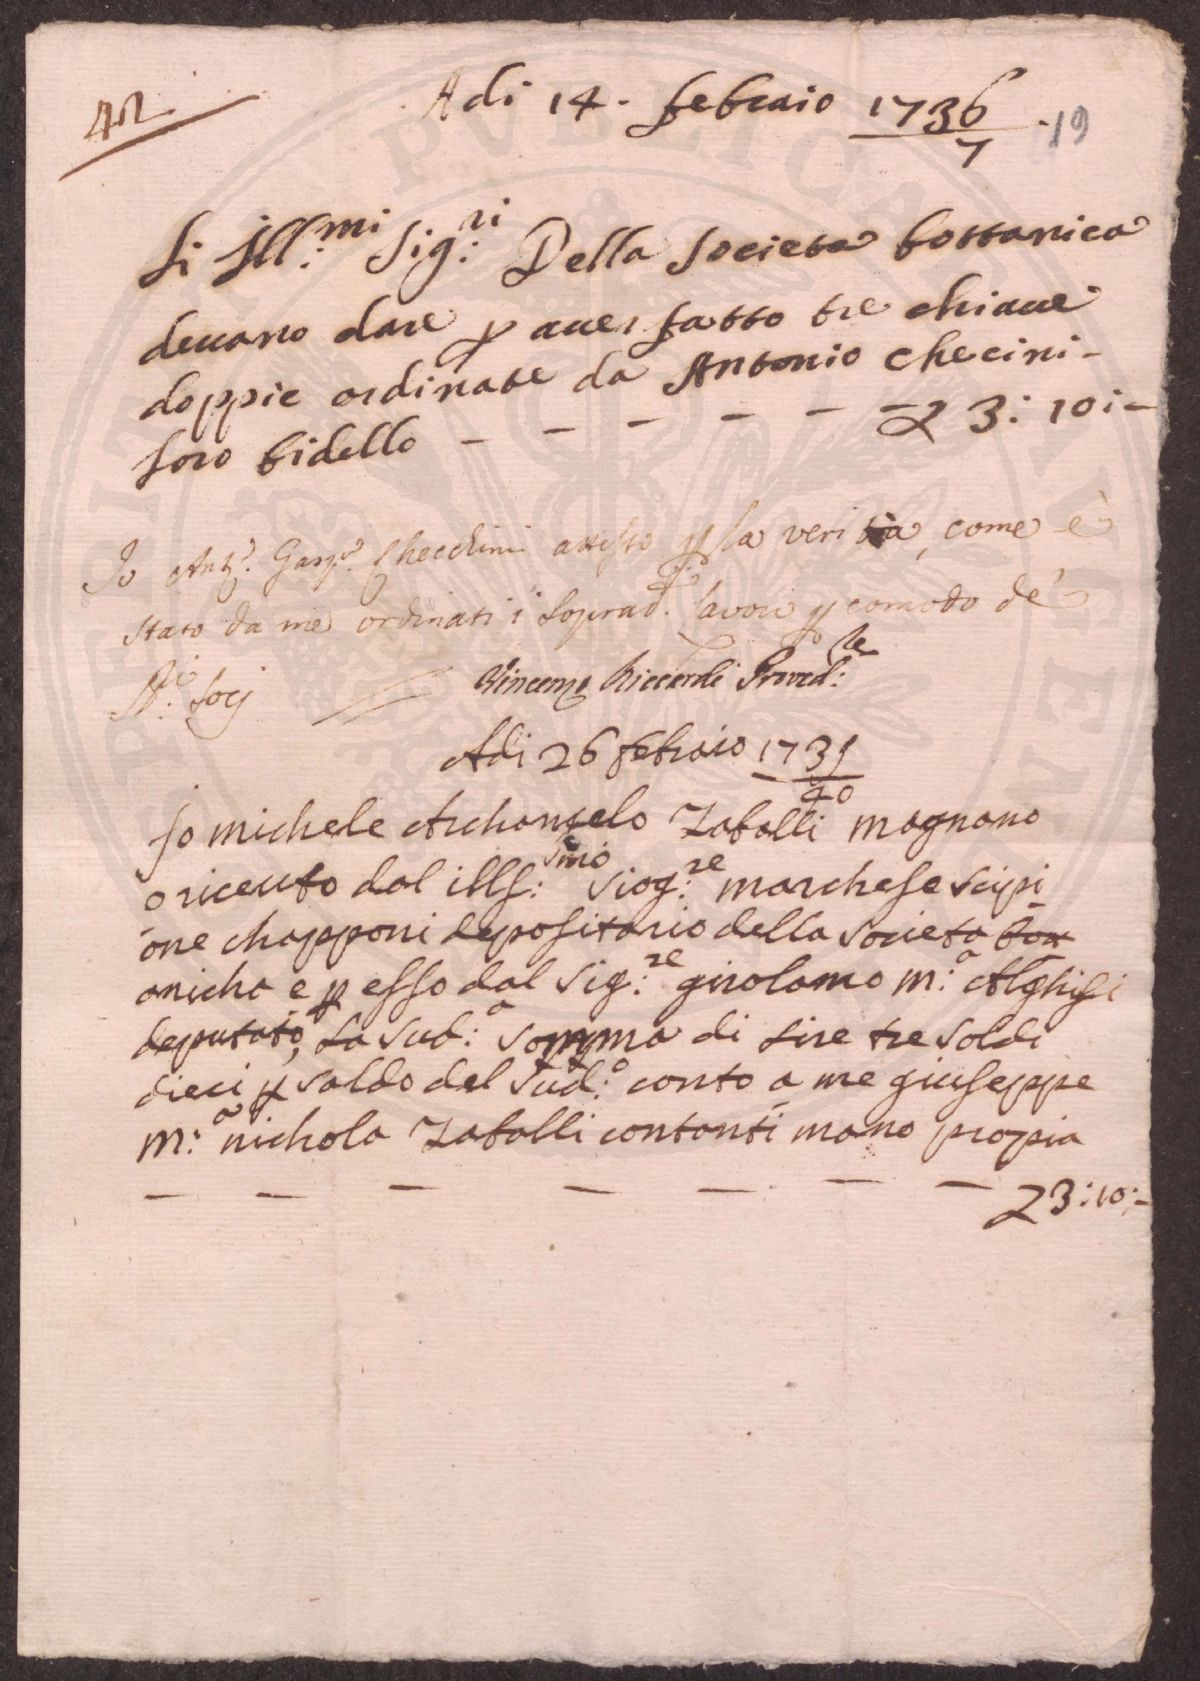 42
Adi 14. febraio 1736/7
19
Li Ill:mi Sig:ri Della Societa bottanica
deuano dare p auer fatto tre chiaue
doppie ordinate da Antonio checini-
loro bidello - - - - - - £ 3: 10:-
Io Ant.o Gasp.e Checchini attesto p la verità, come è
stato da me ordinati i soprad.i lavori p comodo de'
S:ri Socj
Vincenzo Riccardi Proved:re
Adi 26 febraio 1739/40
Io michele Archangelo Zaballi magnano
o riceuto dal ills:smo Siog:re marchese scipi
one chapponi depositario della societa bot
anicha e p esso dal Sig:re girolamo m:a Alghisi
deputato, La sud:a somma di lire tre soldi
dieci p saldo del sud:o conto a me giuseppe
m:a nichola Zaballi contanti mano propia
- - - - - - - £ 3:10:-